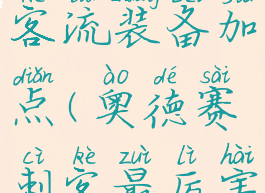 客流装备加
diǎn ào dé sài
点(奥德赛
cì kè zuì lì hài
刺客最厉害